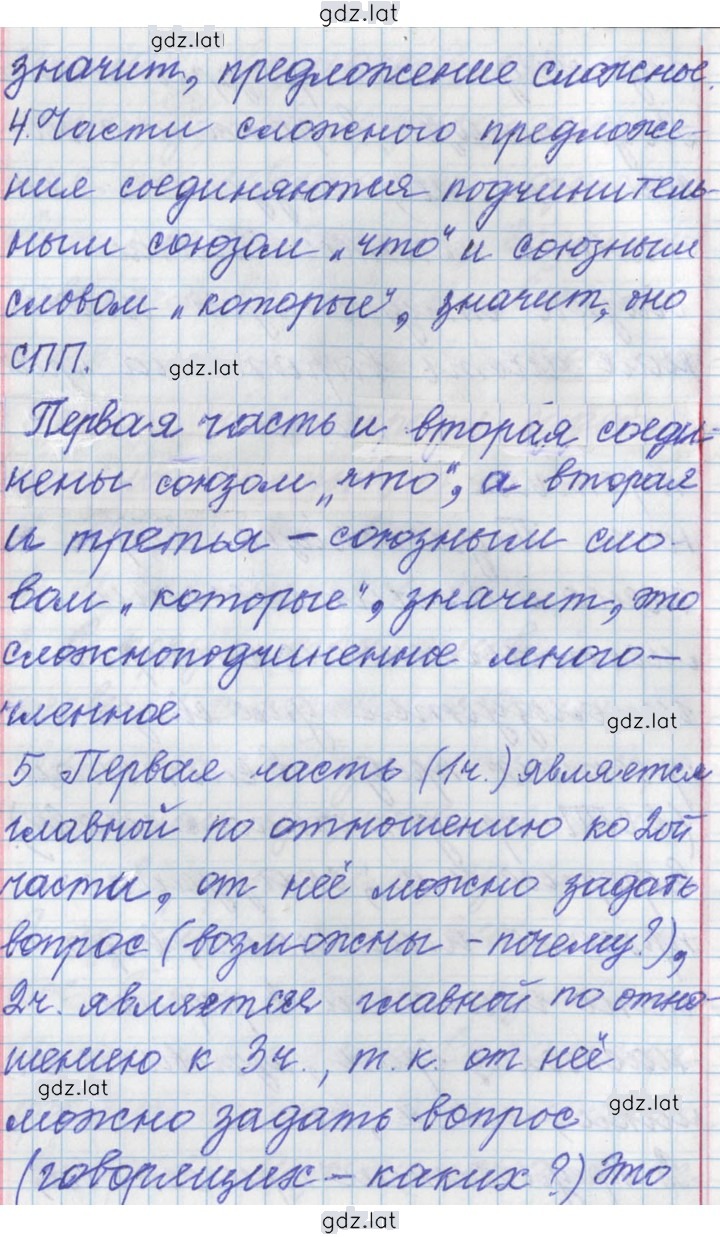 gdz.lat
gdz.lat
значит, предложение сложное.
4. Части сложного предложе-
ния соединяются подчинитель-
ным союзом „что" и союзным
словом „которые", значит, оно
СПП.
gdz.lat
Первая часть и вторая соеди-
нены союзом „что", а вторая
и третья – союзным сло-
вом „которые", значит, это
сложноподчиненное много-
членное
gdz.lat
5. Первая часть (1ч.) является
главной по отношению ко 2ой
части, от неё можно задать
вопрос (возможны – почему?),
2ч. является главной по отно-
шению к 3ч., т.к. от неё
gdz.lat
можно задать вопрос
gdz.lat
(говорящих – каких?) Это
gdz.lat